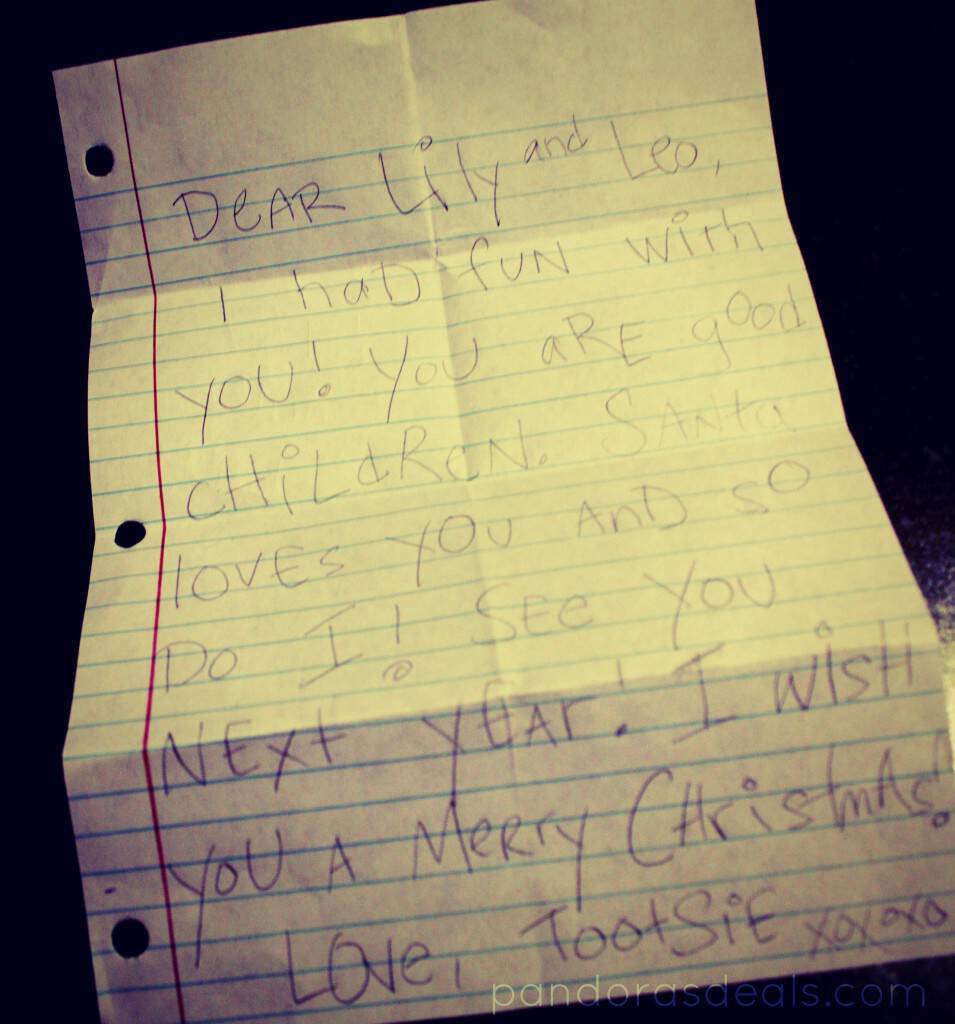 DeAR Lily and Leo,
I haD fUN wiTh
YOU! YOU aRE good
CHiLdReN. SANta
lOVEs YOU AnD sO
Do I! SEe YOU
NExt YEAr! I wiSH
YOU A MerrY CHristmAs!
LOve, TootSiE xoxoxo
pandorasdeals.com